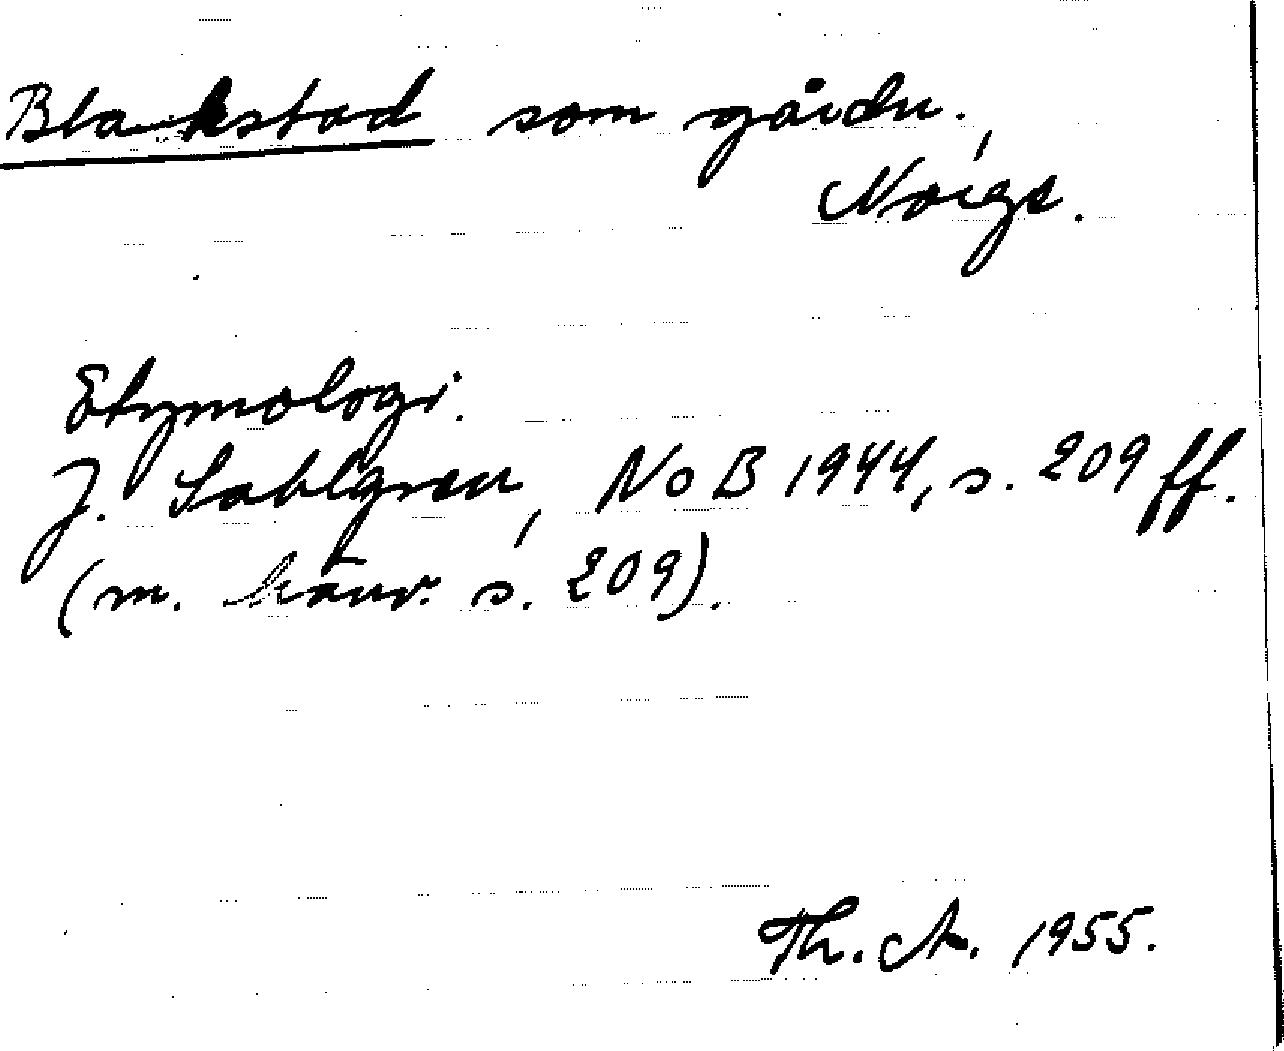 Blackstad som gårdn.,
Norge.
Etymologi.
J. Sahlgren, NoB 1944, s. 209 ff.
(m. hänv. s. 209).
Th. A. 1955.